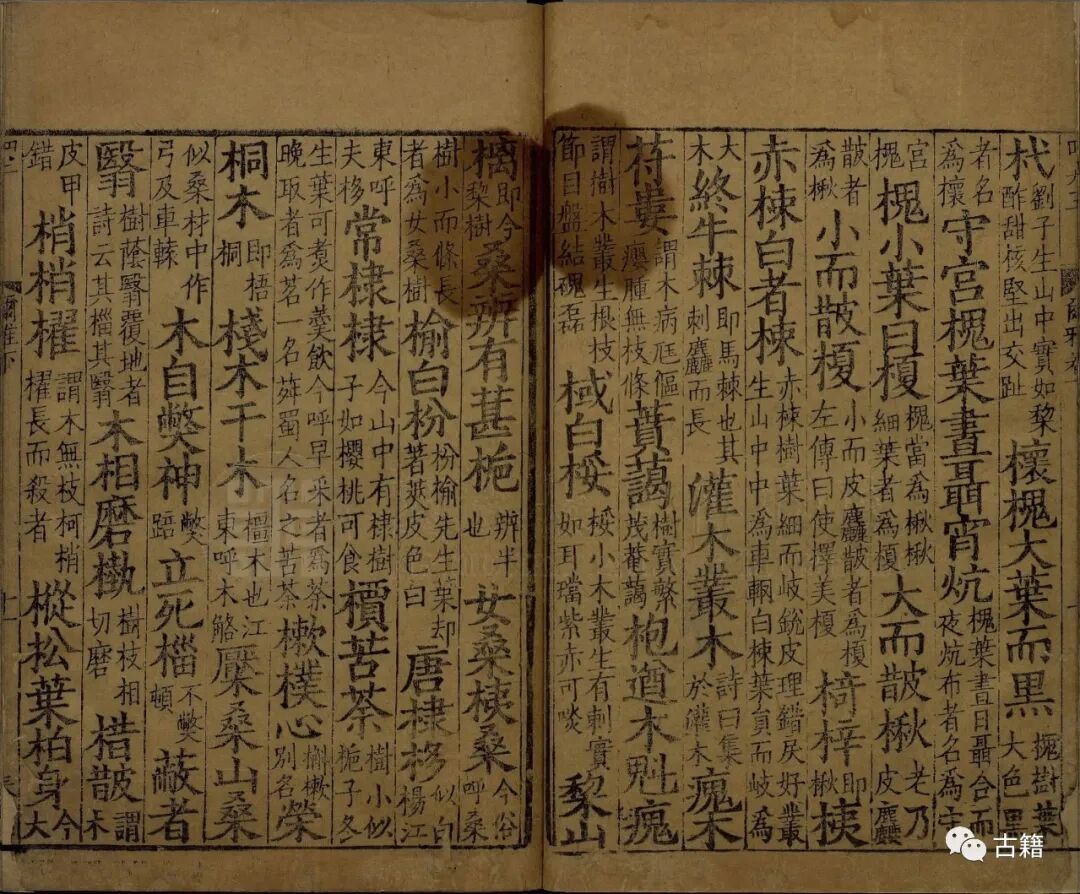 杙劉子生山中實如棃酢甜核堅出交趾櫰槐大葉而黑槐樹葉大色黑
者名爲櫰守宮槐葉晝聶宵炕槐葉晝日聶合而夜炕布者名爲守
宮槐槐小葉曰榎槐當爲楸楸細葉者爲榎大而皵楸老乃皮麤
皵者爲楸小而皵榎小而皮麤皵者爲榎左傳曰使擇美榎椅梓即楸桋
赤楝白者楝赤楝樹葉細而岐銳皮理錯戾好叢生山中中爲車輞白楝葉員而岐爲
大木終牛棘即馬棘也其刺麤而長灌木叢木詩曰集於灌木瘣木
苻婁謂木病尫傴癭腫無枝條蕡藹樹實繁茂菴藹枹遒木魁瘣
謂樹木叢生根枝節目盤結磈磊棫白桵桵小木叢生有刺實如耳璫紫赤可啖棃山
樆即今棃樹桑辨有葚梔辨半也女桑桋桑今俗呼桑
樹小而條長者爲女桑樹榆白枌枌榆先生葉却著莢皮色白唐棣栘似白楊江
東呼夫栘常棣棣今山中有棣樹子如櫻桃可食檟苦荼樹小似梔子冬
生葉可煑作羹飲今呼早采者爲荼晚取者爲茗一名荈蜀人名之苦荼樕樸心槲樕別名榮
桐木即梧桐棧木干木橿木也江東呼木觡檿桑山桑
似桑材中作弓及車轅木自獘神獘踣立死椔不獘頓蔽者
翳樹蔭翳覆地者詩云其椔其翳木相磨槸樹枝相切磨棤皵謂木
皮甲錯梢梢櫂謂木無枝柯梢櫂長而殺者樅松葉柏身今大
爾雅下
古籍